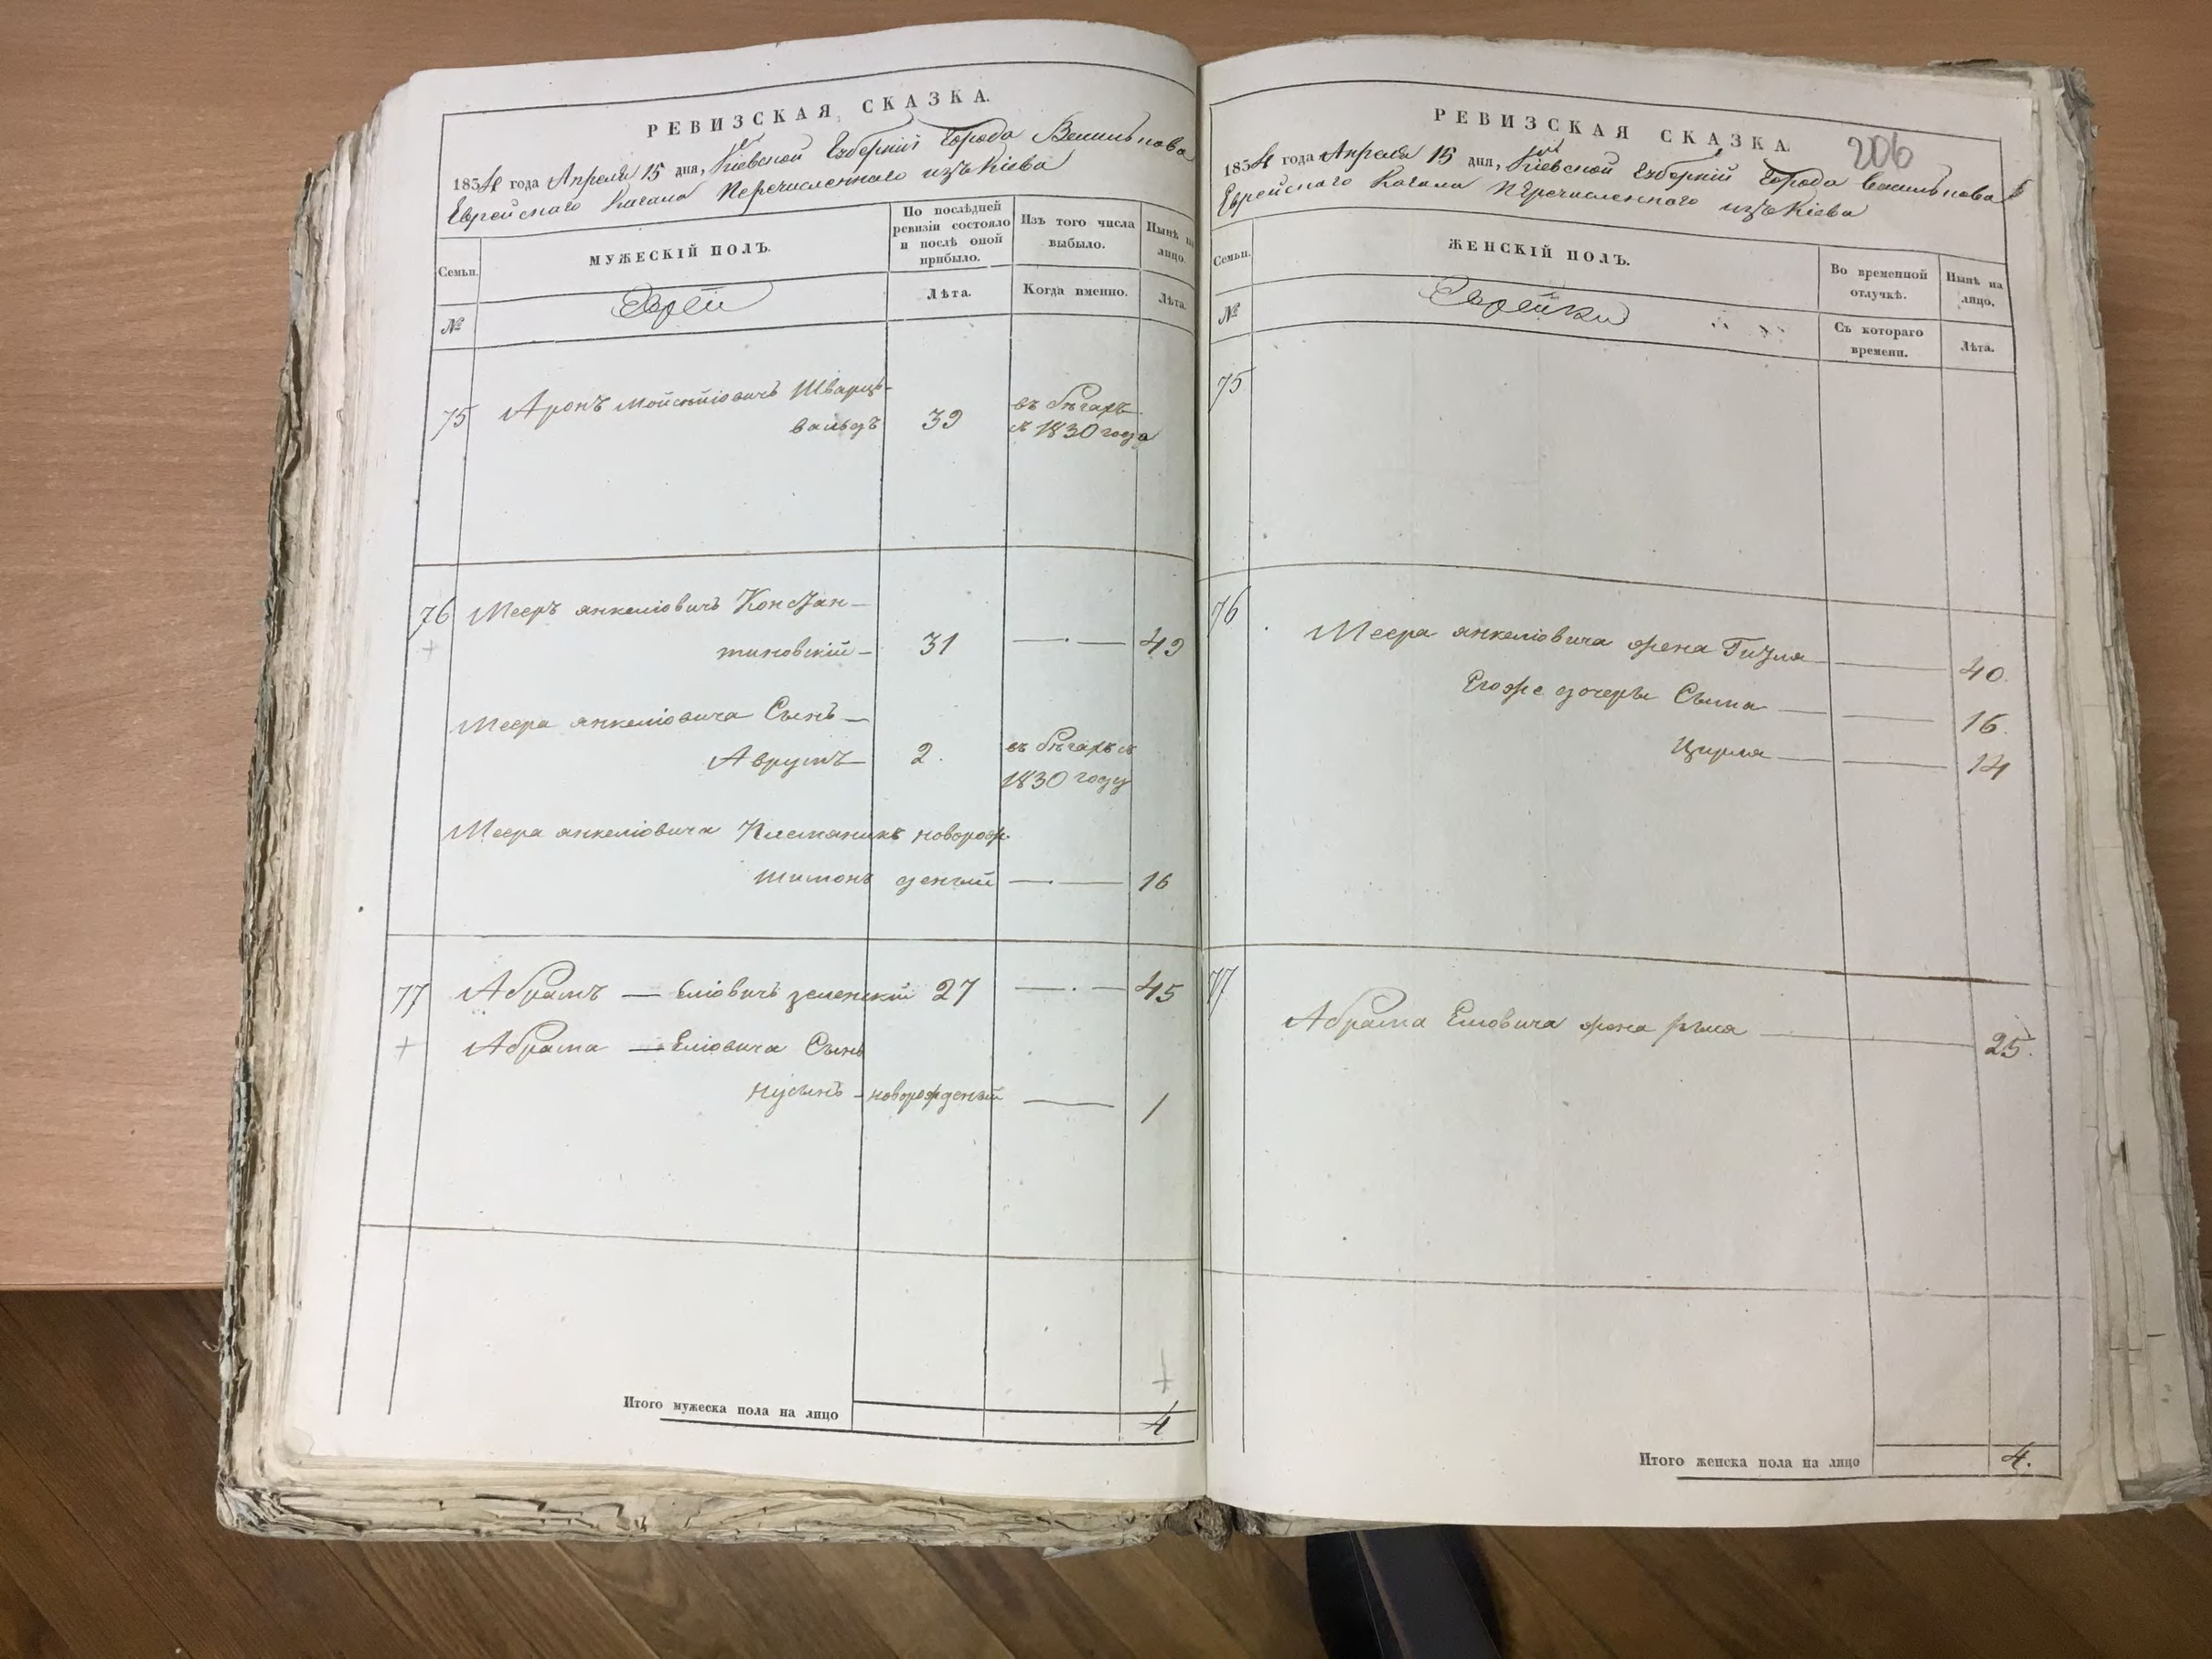 РЕВИЗСКАЯ СКАЗКА.
1834 года Апреля 15 дня, Кіевской Губерніи Города Василькова
Еврейскаго Кагала Перечисленнаго изъ Кіева
Семьи.
МУЖЕСКІЙ ПОЛЪ.
По послѣдней ревизіи состояло и послѣ оной прибыло.
Изъ того числа выбыло.
Нынѣ на лицо.
№
Евреи
Лѣта.
Когда именно.
Лѣта.
75 Аронъ Мойсѣйіовичъ Шварцъ-
вальдъ 39
въ бѣгахъ
съ 1830 года
76 Мееръ Янкеліовичъ Констан-
тиновскій 31 — 49
Меера Янкеліовича Сынъ
Аврумъ 2. въ бѣгахъ съ
1830 году
Меера Янкеліовича Племяникъ новорож-
Шимонъ деный — 16
77 Абрамъ — Еліовичъ Зеленскій 27 — 45
Абрама — Еліовича Сынъ
Нусынъ новорожденый — 1
Итого мужеска пола на лицо 4
РЕВИЗСКАЯ СКАЗКА.
206
1834 года Апреля 15 дня, Кіевской Губерніи Города Василькова
Еврейскаго Кагала Перечисленнаго изъ Кіева
Семьи.
ЖЕНСКІЙ ПОЛЪ.
Во временной отлучкѣ.
Нынѣ на лицо.
№
Еврейки
Съ котораго времени.
Лѣта.
75
76
Меера Янкеліовича жена Гизля — 40.
Егоже дочеры Сыма — 16.
Цирля — 14
77
Абрама Еліовича жена — 25.
Итого женска пола на лицо 4.